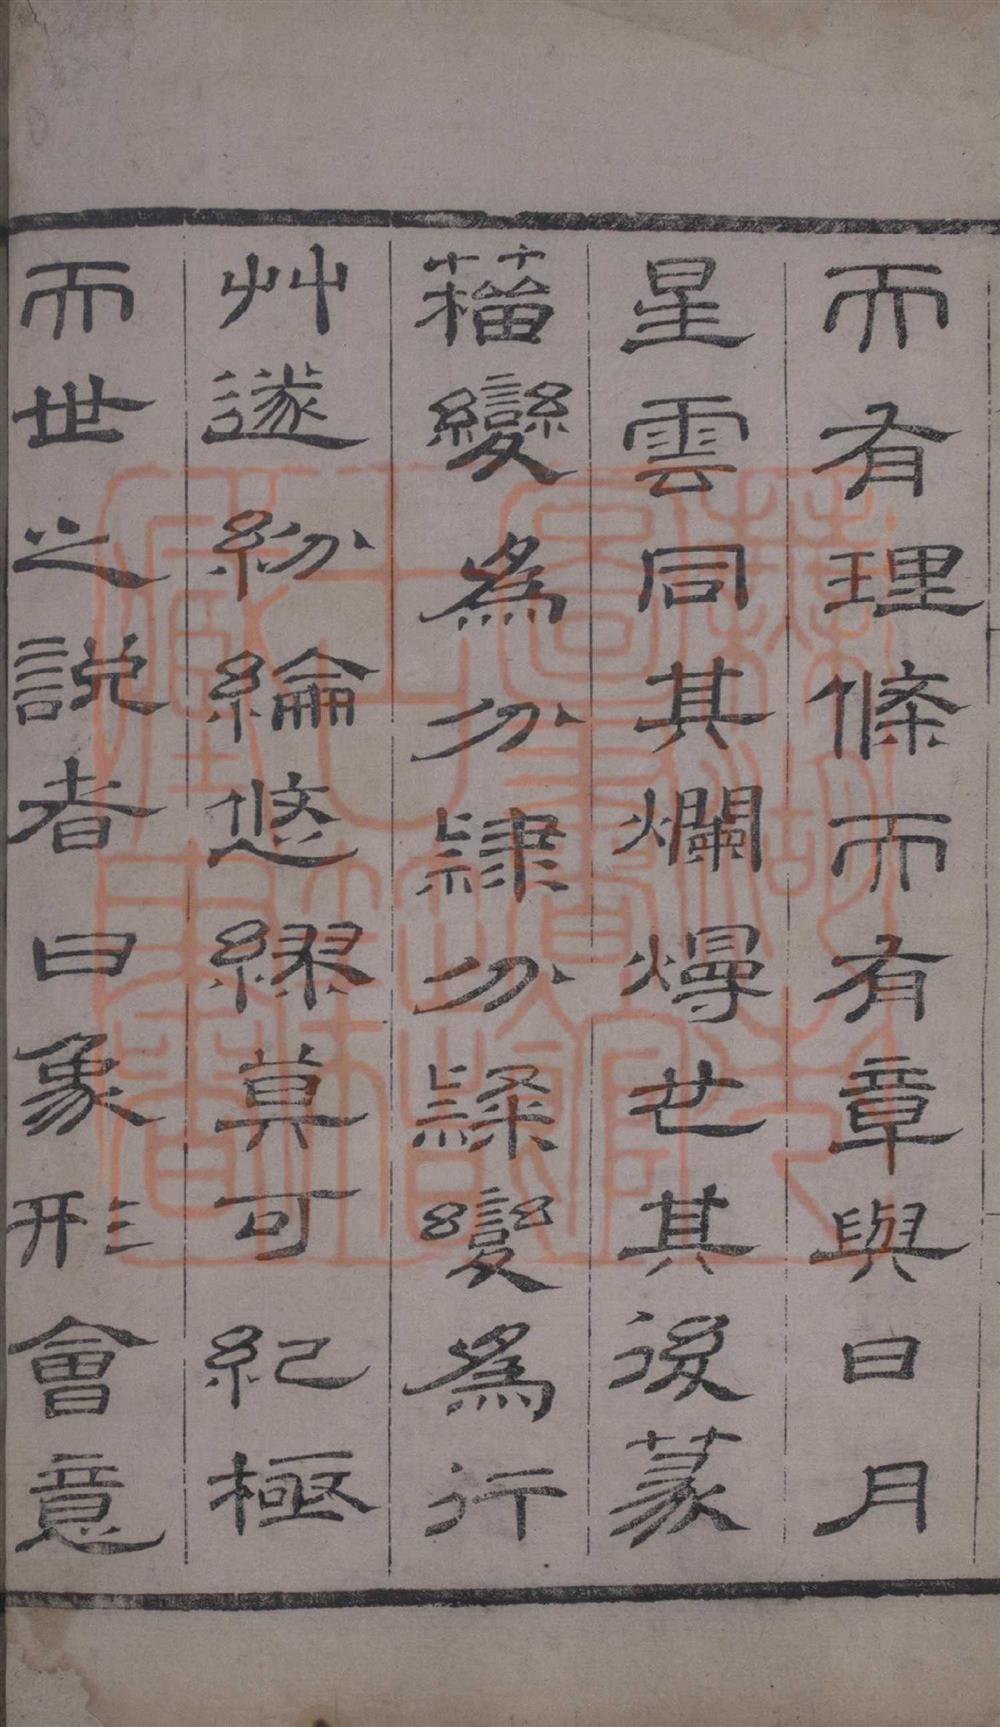 而有理條而有章與日月
星雲同其爛熳也其後篆
籀變為分隸分隸變為行
艸遂紛綸悠繆莫可紀極
而世之說者曰象形會意